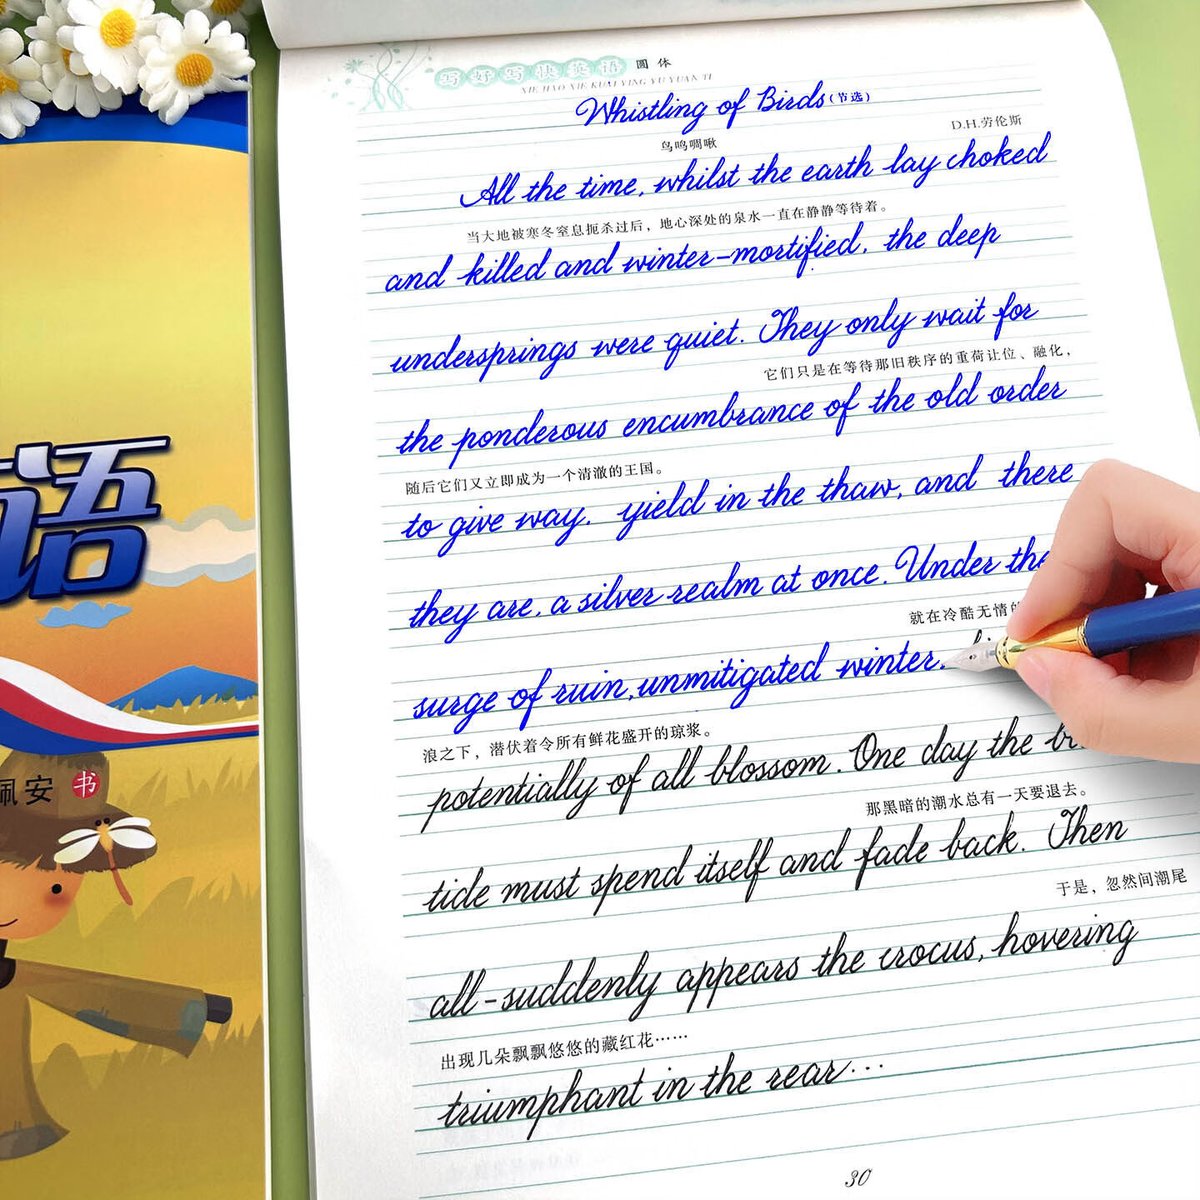 写好写快英语 圆体
XIE HAO XIE KUAI YING YU YUAN TI
Whistling of Birds (节选)
鸟鸣啁啾
D.H.劳伦斯
All the time, whilst the earth lay choked
当大地被寒冬窒息扼杀过后，地心深处的泉水一直在静静等待着。
and killed and winter-mortified, the deep
undersprings were quiet. They only wait for
它们只是在等待那旧秩序的重荷让位、融化，
the ponderous encumbrance of the old order
随后它们又立即成为一个清澈的王国。
to give way, yield in the thaw, and there
they are, a silver realm at once. Under the
就在冷酷无情的
surge of ruin, unmitigated winter,
浪之下，潜伏着令所有鲜花盛开的琼浆。
potentially of all blossom. One day the
那黑暗的潮水总有一天要退去。
tide must spend itself and fade back. Then
于是，忽然间潮尾
all-suddenly appears the crocus, hovering
出现几朵飘飘悠悠的藏红花……
triumphant in the rear...
30
语
佩安 书